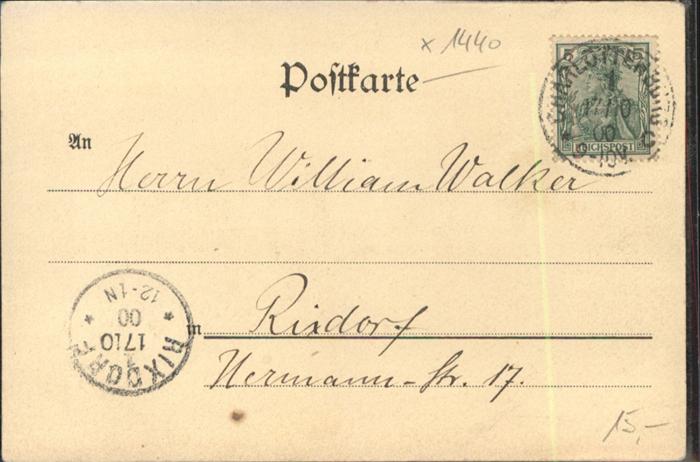 x 1440
Postkarte
5 5
REICHSPOST
CHARLOTTENBURG
1
17.10
00
9-10V.
An
Herrn William Walker
in Rixdorf
Hermann-Str. 17.
RIXDORF
1
1710
00
12-1N
15,-